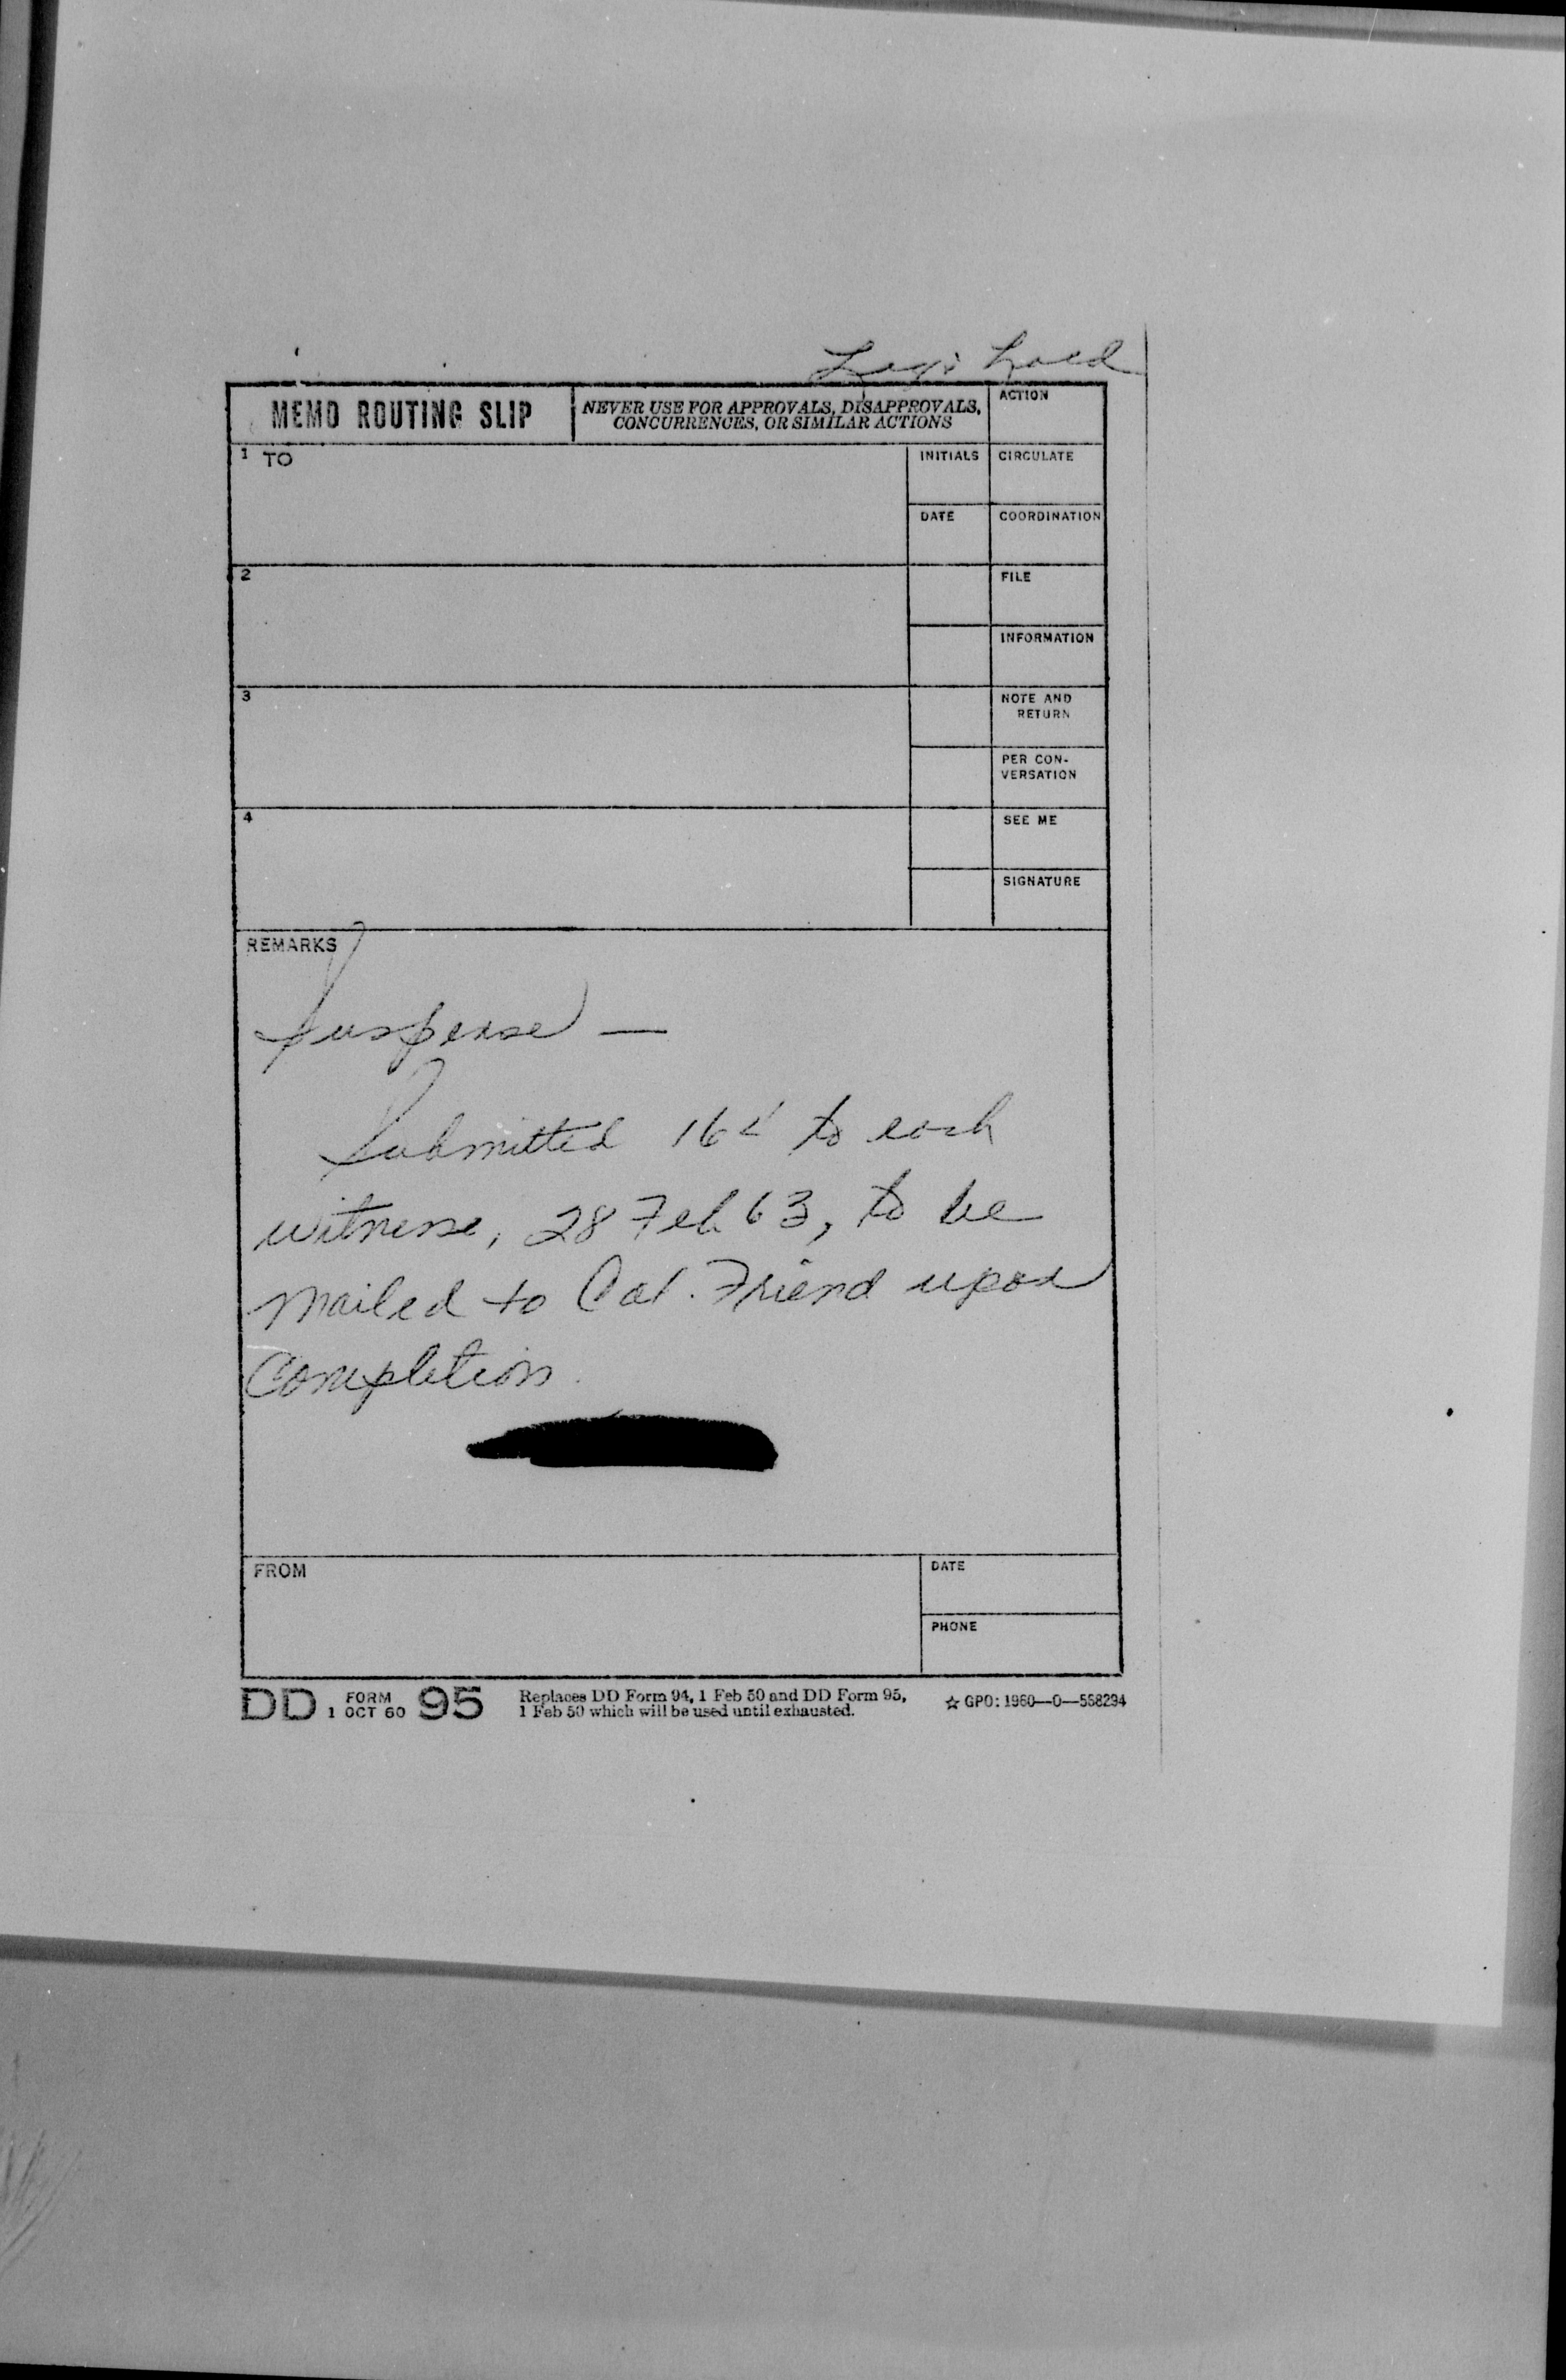 MEMO ROUTING SLIP
NEVER USE FOR APPROVALS, DISAPPROVALS,
CONCURRENCES, OR SIMILAR ACTIONS
ACTION
1 TO
INITIALS
CIRCULATE
DATE
COORDINATION
2
FILE
INFORMATION
3
NOTE AND
RETURN
PER CON-
VERSATION
4
SEE ME
SIGNATURE
REMARKS
Suspense —
Submitted 164 to each
witness, 28 Feb 63, to be
mailed to Col. Friend upon
completion.
FROM
DATE
PHONE
DD FORM 95
1 OCT 60
Replaces DD Form 94, 1 Feb 50 and DD Form 95,
1 Feb 50 which will be used until exhausted.
☆ GPO: 1960—O—558294